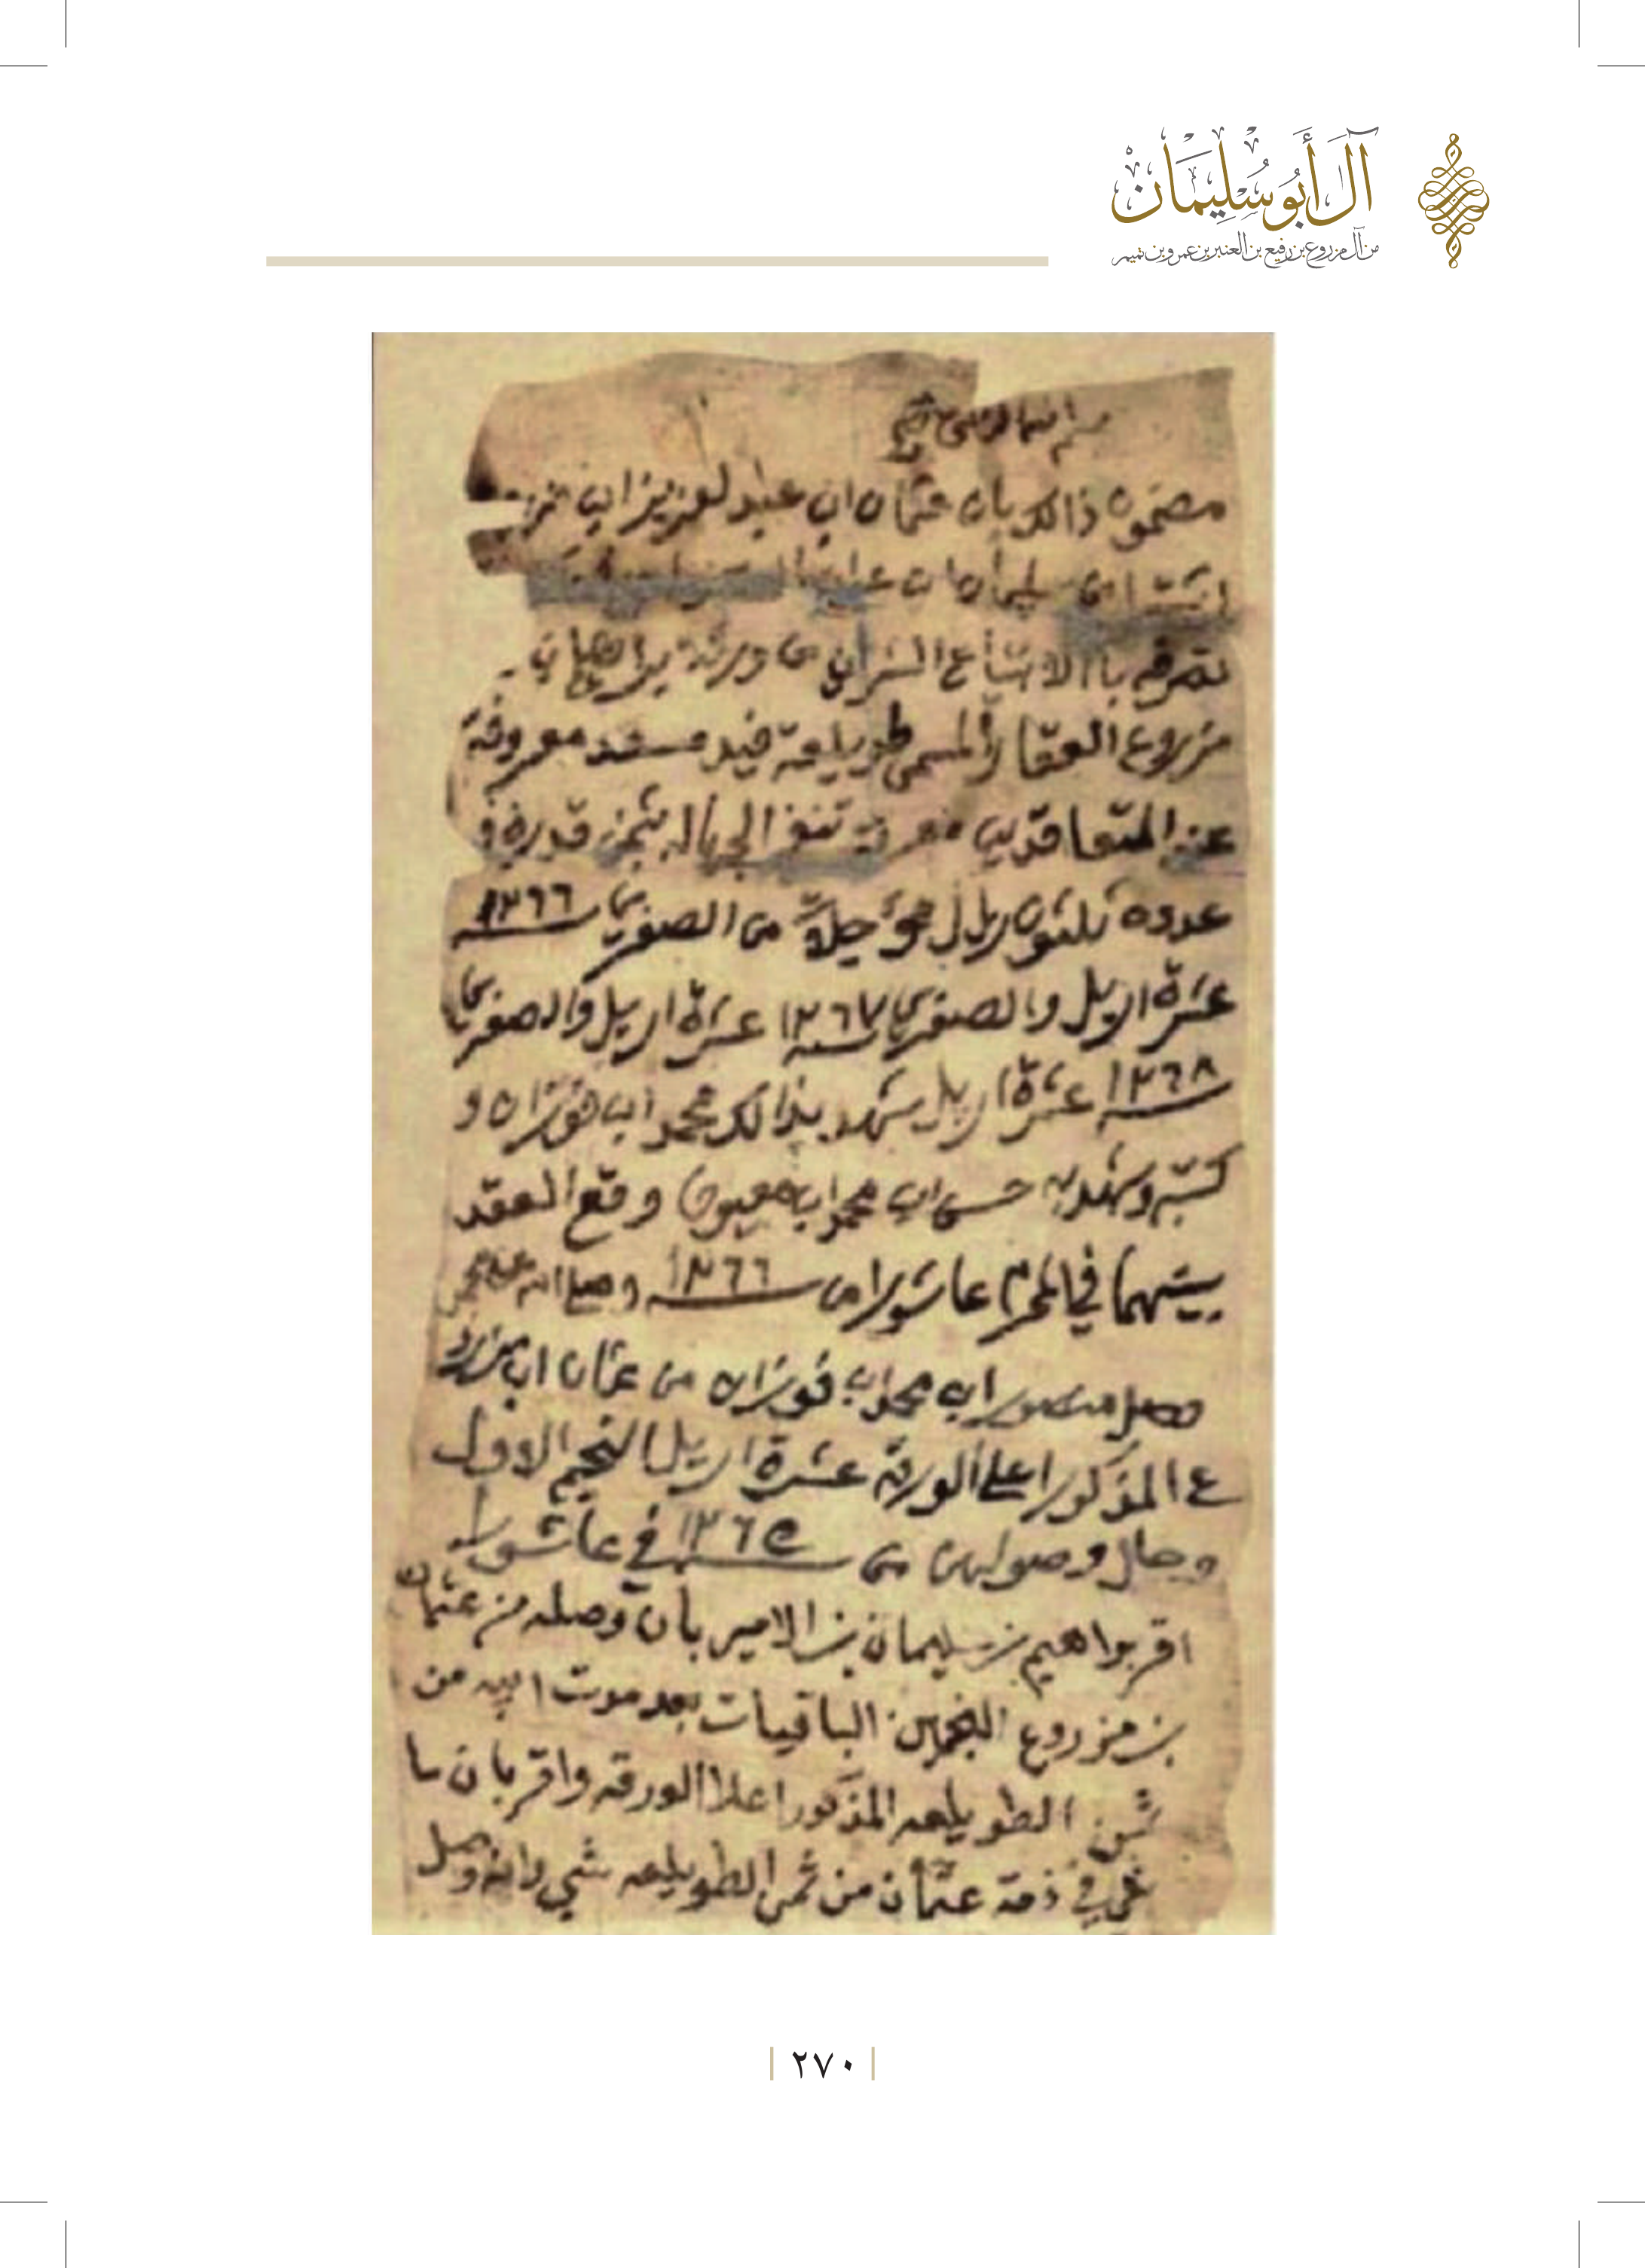 آلُ أَبُو سُلَيْمَان
من آل مزروع بن رفيع بن العنبر بن عمرو بن تميم
بسم الله الرحمن الرحيم
مضمون ذالك بان عثمان ابن عبد لعزيز ابن مزر
اشترا من سليمان ابن
تصرفه باالابتياع الشراي من ورثة براهيم ابن
مزروع العقار المسمى طويلعة فيد مسعد معروفة
عند المتعاقدين معرفة تنفي الجهاله بثمن قدره و
عدده ثلثون ريال مؤجلة من الصفري ١٢٦٦
عشرة اريل والصفري ١٢٦٧ عشرة اريل والصفري
١٢٦٨ عشرة اريل شهد بذالك محمد ابن فوزان و
كتبه وشهد به حسن ابن محمد ابن معيوف وقع العقد
بينهما في المحرم عاشورا من ١٢٦٦ وصلى الله على محمد
وصل منصور ابن محمد ابن فوزان من عثمان ابن مزرو
ع المذكور اعلى الورقه عشرة اريل النجم الاول
وحال وصولهن من ١٢٦٥ في عاشورا
اقر براهيم بن سليمان بن الامير بأن وصله من عثمان
بن مزروع النجمين الباقيات بعد موت ابيه من
ثمن الطويلعه المذكور اعلا الورقه واقر بان ما
في ذمة عثمان من ثمن الطويلعه شي
٢٧٠